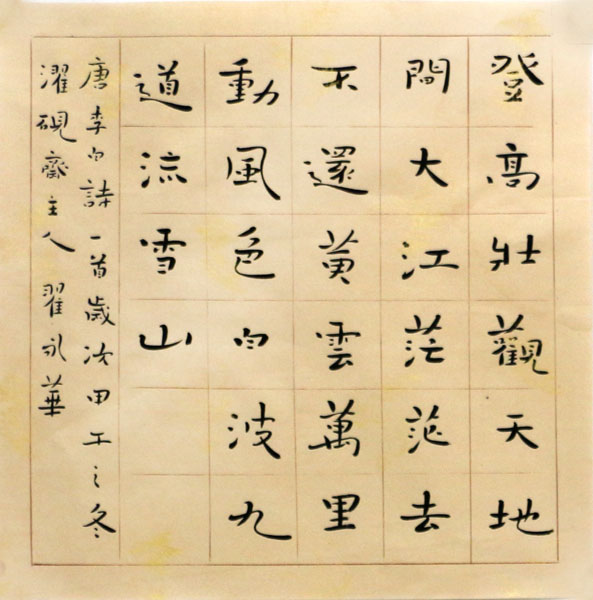 登高壯觀天地
間大江茫茫去
不還黃雲萬里
動風色白波九
道流雪山
唐李白詩一首歲次甲午之冬
濯硯齋主人翟永華